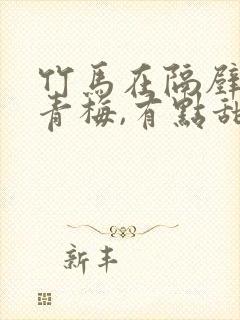 竹馬在隔壁
青梅,有點甜
新丰